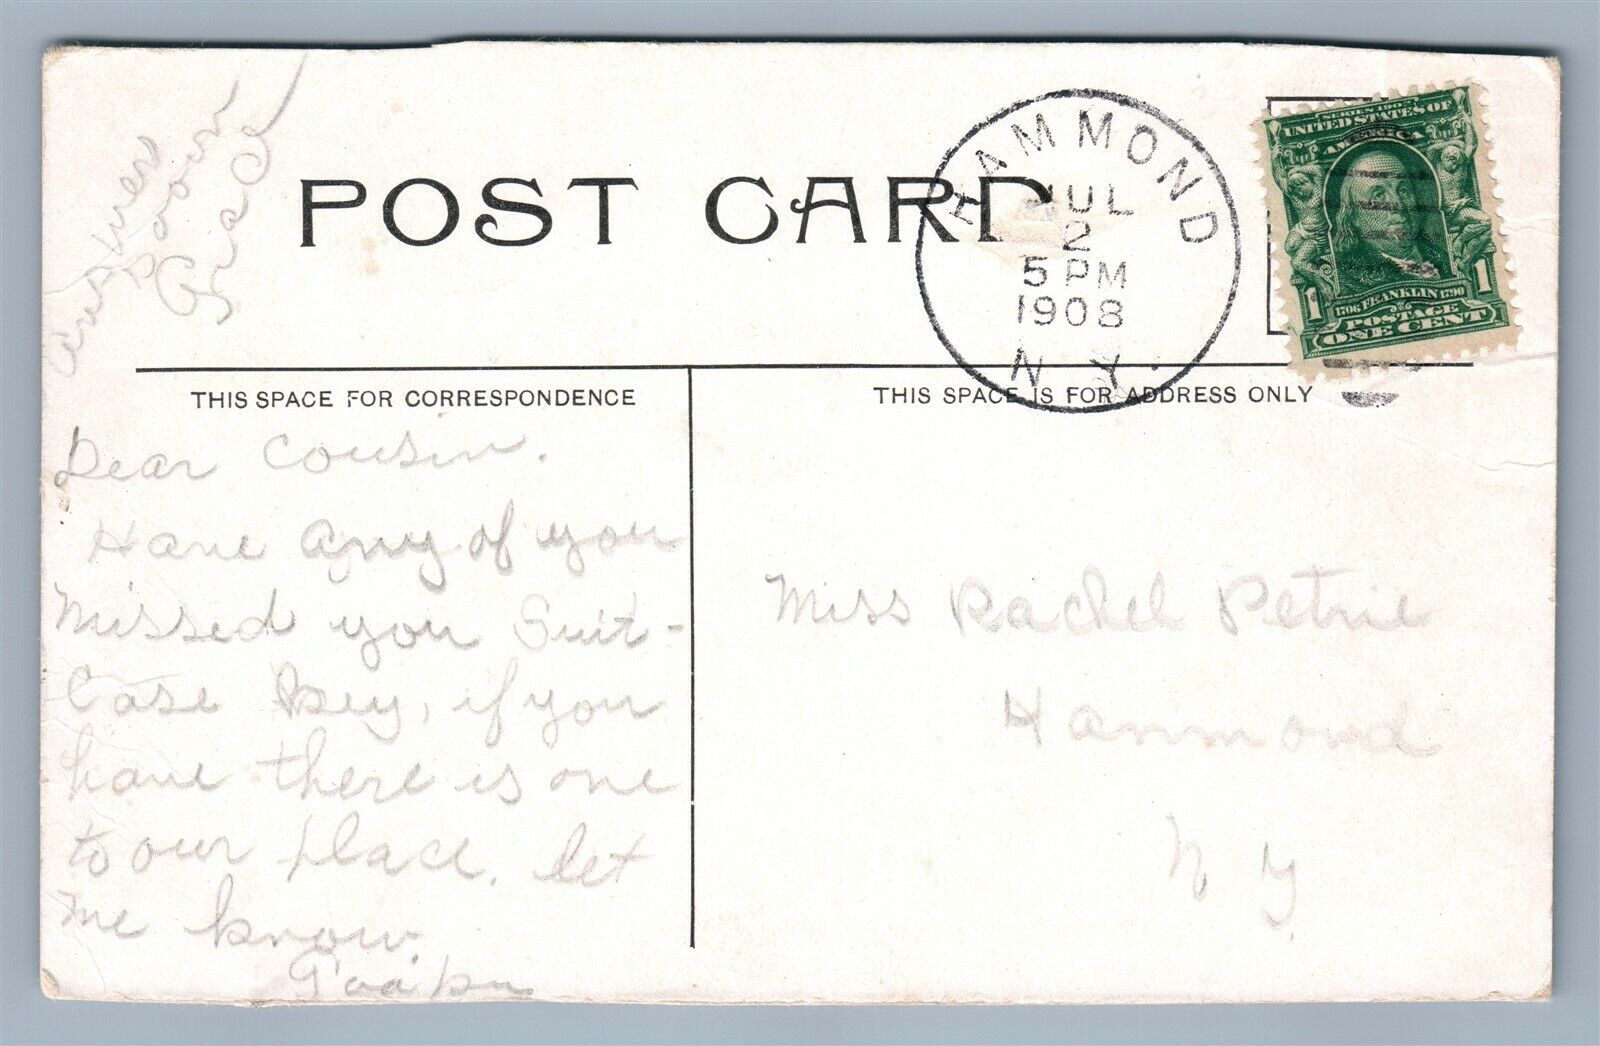 answer
soon
Grace
POST CARD
HAMMOND
JUL
2
5 PM
1908
N.Y.
SERIES 1902
UNITED STATES OF
AMERICA
1 1
1706 FRANKLIN 1790
POSTAGE
ONE CENT
THIS SPACE FOR CORRESPONDENCE
THIS SPACE IS FOR ADDRESS ONLY
Dear Cousin.
Have any of you
Missed you Suit-
Case Key, if you
have there is one
to our place. let
me know.
Miss Rachel Petrie
Hammond
N Y.